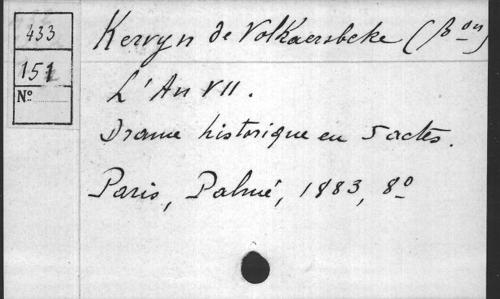 433
151
No
Kervyn de Volkaersbeke (Bon)
L'An VII.
Drame historique en 5 actes.
Paris, Palmé, 1883, 8o